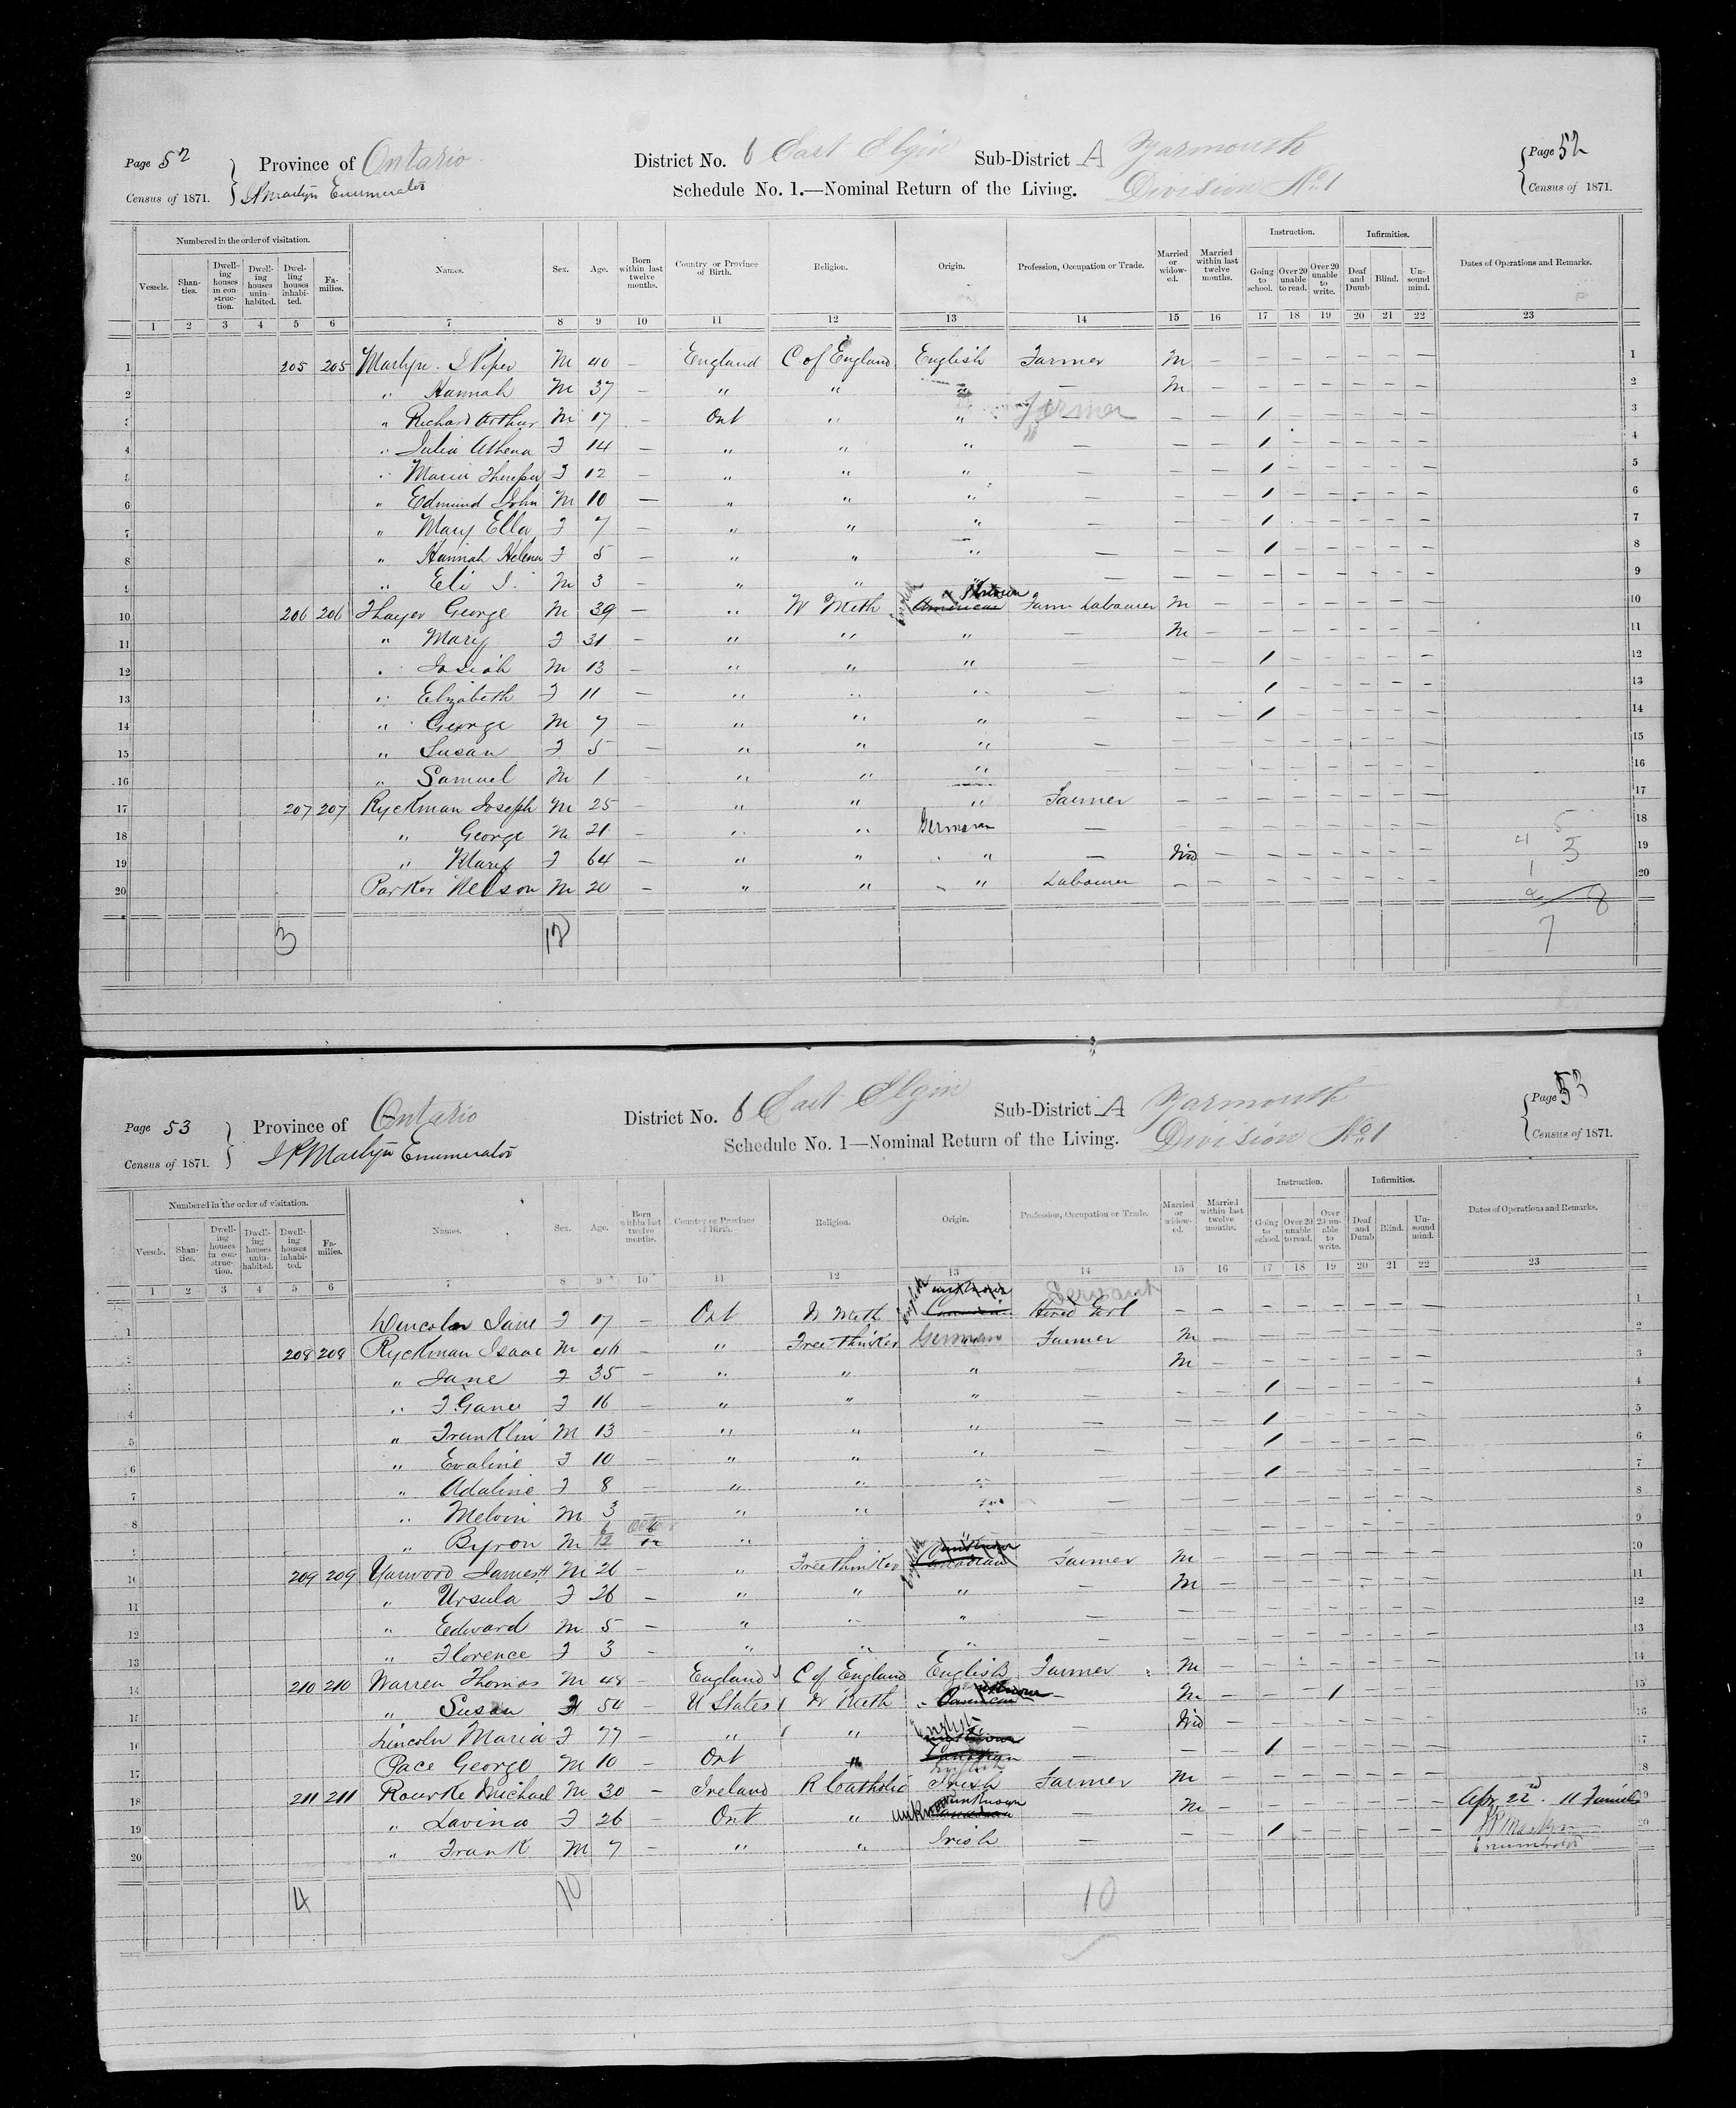 Page 52 } Province of Ontario District No. 6 East Elgin Sub-District A Yarmouth { Page 52
Census of 1871. JP Martyn Enumerator Schedule No. 1.—Nominal Return of the Living. Division No. 1 Census of 1871.
Numbered in the order of visitation. Instruction. Infirmities.
Vessels. Shanties. Dwelling houses in construction. Dwelling houses uninhabited. Dwelling houses inhabited. Families. Names. Sex. Age. Born within last twelve months. Country or Province of Birth. Religion. Origin. Profession, Occupation or Trade. Married or widowed. Married within last twelve months. Going to school. Over 20 unable to read. Over 20 unable to write. Deaf and Dumb Blind. Unsound mind. Dates of Operations and Remarks.
1 2 3 4 5 6 7 8 9 10 11 12 13 14 15 16 17 18 19 20 21 22 23
1 205 205 Martyn J Piper M 40 — England C of England English Farmer M — — — — — — — 1
2 " Hannah M 37 — " " " — M — — — — — — — 2
3 " Richard Arthur M 17 — Ont " " Farmer — — 1 — — — — — 3
4 " Julia Athena F 14 — " " " — — — 1 — — — — — 4
5 " Maria F 12 — " " " — — — 1 — — — — — 5
6 " Edmund John M 10 — " " " — — — 1 — — — — — 6
7 " Mary Ella F 7 — " " " — — — 1 — — — — — 7
8 " Hannah Helena F 5 — " " " — — — 1 — — — — — 8
9 " Eli J. M 3 — " " " — — — — — — — — — 9
10 206 206 Thayer George M 39 — " W Meth American Farm Labourer M — — — — — — — 10
11 " Mary F 31 — " " " — M — — — — — — — 11
12 " Josiah M 13 — " " " — — — 1 — — — — — 12
13 " Elizabeth F 11 — " " " — — — 1 — — — — — 13
14 " George M 7 — " " " — — — 1 — — — — — 14
15 " Susan F 5 — " " " — — — — — — — — — 15
16 " Samuel M 1 — " " " — — — — — — — — — 16
17 207 207 Ryckman Joseph M 25 — " " " Farmer — — — — — — — — 17
18 " George M 21 — " " German — — — — — — — — — 18
19 " Mary F 64 — " " " — Wid — — — — — — — 19
20 Parker Nelson M 20 — " " " Labourer — — — — — — — — 20
3 7
Page 53 } Province of Ontario District No. 6 East Elgin Sub-District A Yarmouth { Page 53
Census of 1871. JP Martyn Enumerator Schedule No. 1—Nominal Return of the Living. Division No. 1 Census of 1871.
Numbered in the order of visitation. Instruction. Infirmities.
Vessels. Shanties. Dwelling houses in construction. Dwelling houses uninhabited. Dwelling houses inhabited. Families. Names. Sex. Age. Born within last twelve months. Country or Province of Birth. Religion. Origin. Profession, Occupation or Trade. Married or widowed. Married within last twelve months. Going to school. Over 20 unable to read. Over 20 unable to write. Deaf and Dumb Blind. Unsound mind. Dates of Operations and Remarks.
1 2 3 4 5 6 7 8 9 10 11 12 13 14 15 16 17 18 19 20 21 22 23
1 Jane F 17 — Ont W Meth English unknown Canadian Servant Hired Girl — — — — — — — — 1
2 208 208 Ryckman Isaac M 46 — " Free thinker German Farmer M — — — — — — — 2
3 " Jane F 35 — " " " M — — — — — — — 3
4 " F 16 — " " " — — — 1 — — — — — 4
5 " Franklin M 13 — " " " — — — 1 — — — — — 5
6 " Evaline F 10 — " " " — — — 1 — — — — — 6
7 " Adaline F 8 — " " " — — — 1 — — — — — 7
8 " Melvin M 3 — " " " — — — — — — — — — 8
9 " Byron M 6/12 " " " — — — — — — — — 9
10 209 209 Yarwood James H M 26 — " Free thinker English unknown Canadian Farmer M — — — — — — — 10
11 " Ursula F 26 — " " " — M — — — — — — — 11
12 " Edward M 5 — " " " — — — — — — — — — 12
13 " Florence F 3 — " " " — — — — — — — — — 13
14 210 210 Warren Thomas M 48 — England C of England English Farmer M — — — — — — — 14
15 " Susan F 54 — U States W Meth unknown — M — — — 1 — — — 15
16 Lincoln Maria F 77 — " " English unknown — Wid — — — — — — — 16
17 Pace George M 10 — Ont " Canadian English — — — 1 — — — — — 17
18 211 211 Rourke Michael M 30 — Ireland R Catholic Irish Farmer M — — — — — — — 18
19 " Lavina F 26 — Ont " unknown Canadian — M — — — — — — — Apr 22nd. 11 Families 19
20 " Frank M 7 — " " Irish — — — 1 — — — — — JP Martyn Enumerator 20
4 10 10